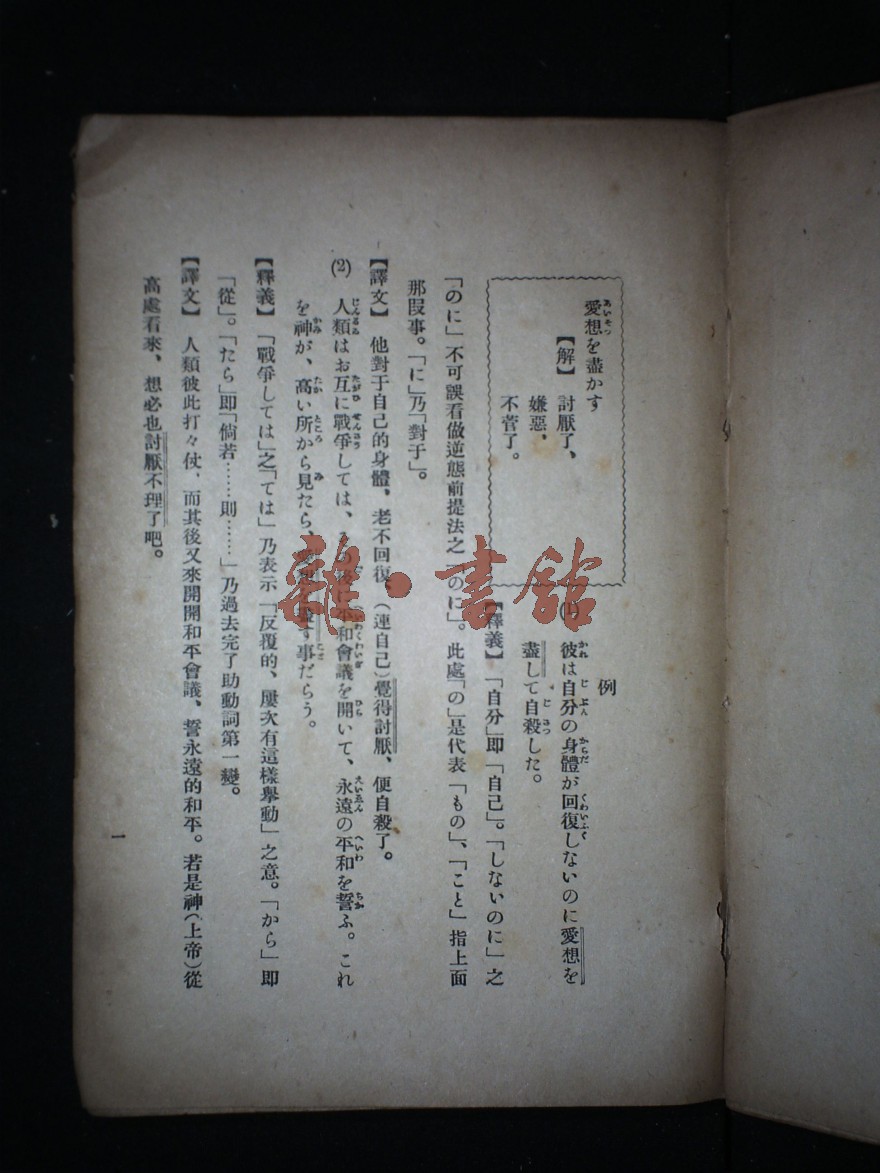 愛想を盡かす
【解】 討厭了、
嫌惡、
不管了。
例
(1) 彼は自分の身體が回復しないのに愛想を
盡して自殺した。
【釋義】 「自分」即「自己」。「しないのに」之
「のに」不可誤看做逆態前提法之「のに」。此處「の」是代表「もの」、「こと」指上面
那段事。「に」乃「對于」。
【譯文】 他對于自己的身體、老不回復、(連自己)覺得討厭、便自殺了。
(2) 人類はお互に戰爭しては、その後に平和會議を開いて、永遠の平和を誓ふ。これ
を神が、高い所から見たら、愛想を盡す事だらう。
【釋義】 「戰爭しては」之「ては」乃表示「反覆的、屢次有這樣擧動」之意。「から」即
「從」。「たら」即「倘若……則……」乃過去完了助動詞第一變。
【譯文】 人類彼此打々仗、而其後又來開開和平會議、誓永遠的和平。若是神(上帝)從
高處看來、想必也討厭不理了吧。
一
雜·書館